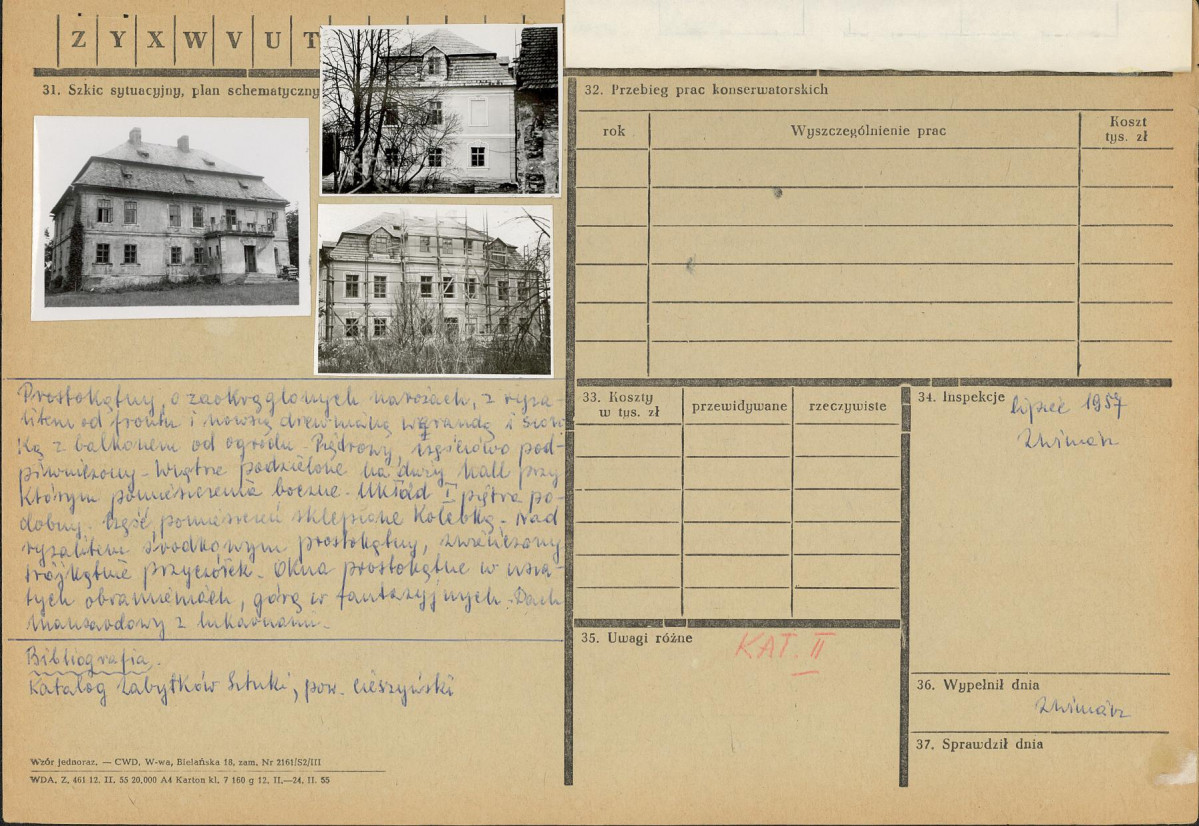 Z Y X W V U T
31. Szkic sytuacyjny, plan schematyczny
Prostokątny, o zaokrąglonych narożach, z ryza-
litem od frontu i nowszą drewnianą werandą i sion
ką z balkonem od ogrodu. Piętrowy, częściowo pod-
piwniczony. Wnętrze podzielone na duży hall przy
którym pomieszczenia boczne. Układ I piętra po-
dobny. Część pomieszczeń sklepione kolebką. Nad
ryzalitem środkowym prostokątny, zwieńczony
trójkątnie przyczółek. Okna prostokątne w usza-
tych obramieniach, górą w fantazyjnych. Dach
mansardowy z lukarnami.
Bibliografia.
Katalog Zabytków Sztuki, pow. cieszyński
Wzór jednoraz. — CWD, W-wa, Bielańska 18, zam. Nr 2161/S2/III
WDA. Z. 461 12. II. 55 20.000 A4 Karton kl. 7 160 g 12. II.—24. II. 55
32. Przebieg prac konserwatorskich
rok
Wyszczególnienie prac
Koszt
tys. zł
33. Koszty
w tys. zł
przewidywane
rzeczywiste
34. Inspekcje
lipiec 1957
35. Uwagi różne
KAT. II
36. Wypełnił dnia
37. Sprawdził dnia